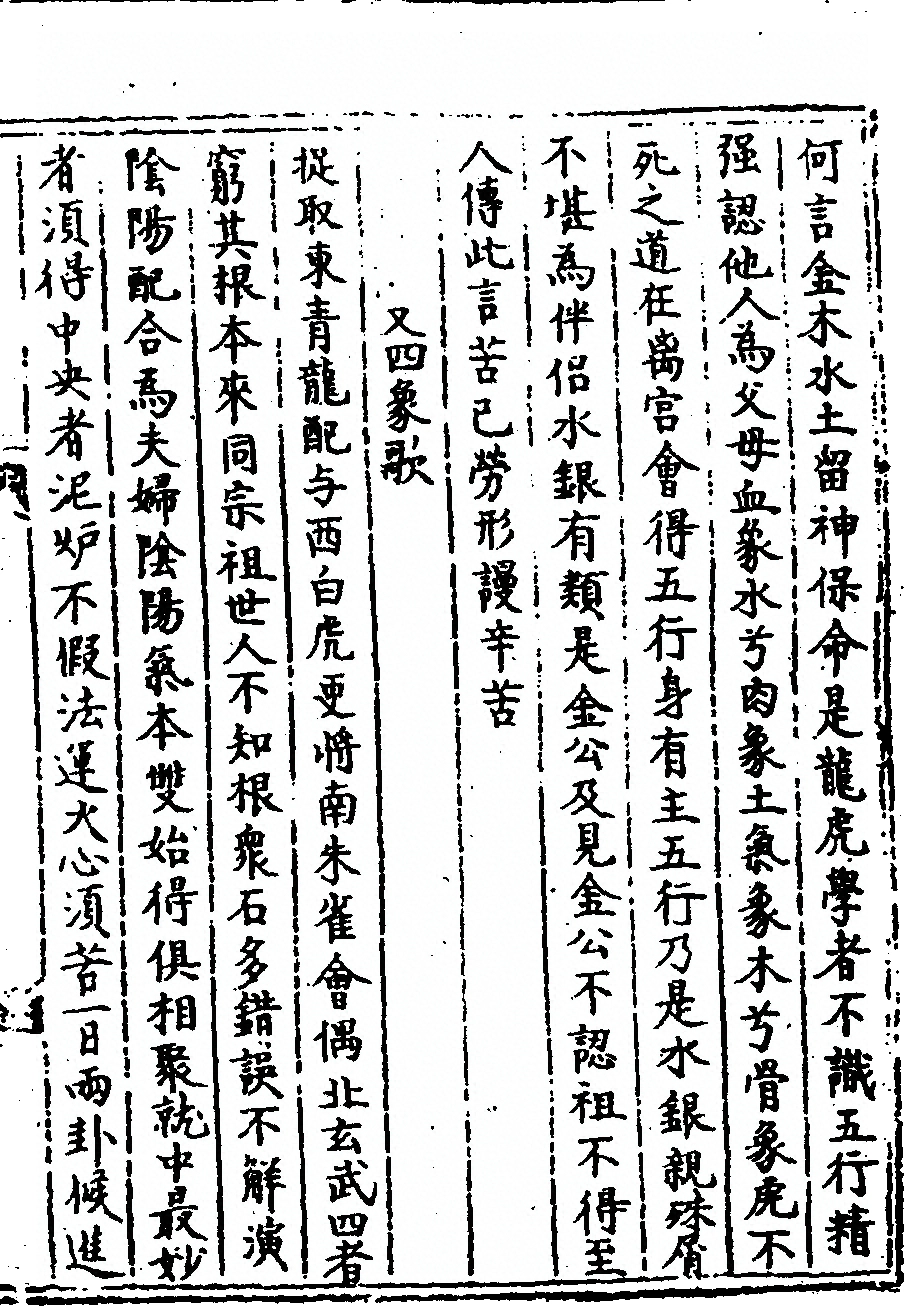 何言金木水土留神保命是龍虎學者不識五行精
强認他人為父母血象水兮肉象土氣象木兮骨象虎不
死之道在离宫會得五行身有主五行乃是水銀親殊屑
不堪為伴侣水銀有類是金公及見金公不認祖不得至
人傳此言苦己勞形謾辛苦
又四象歌
捉取東青龍配与西白虎更將南朱雀會偶北玄武四者
窮其根本來同宗祖世人不知根衆石多錯誤不觧演
陰陽配合爲夫婦陰陽氣本雙始得俱相聚就中最妙
者須得中央者泥炉不假法運火心須苦一日兩卦候進